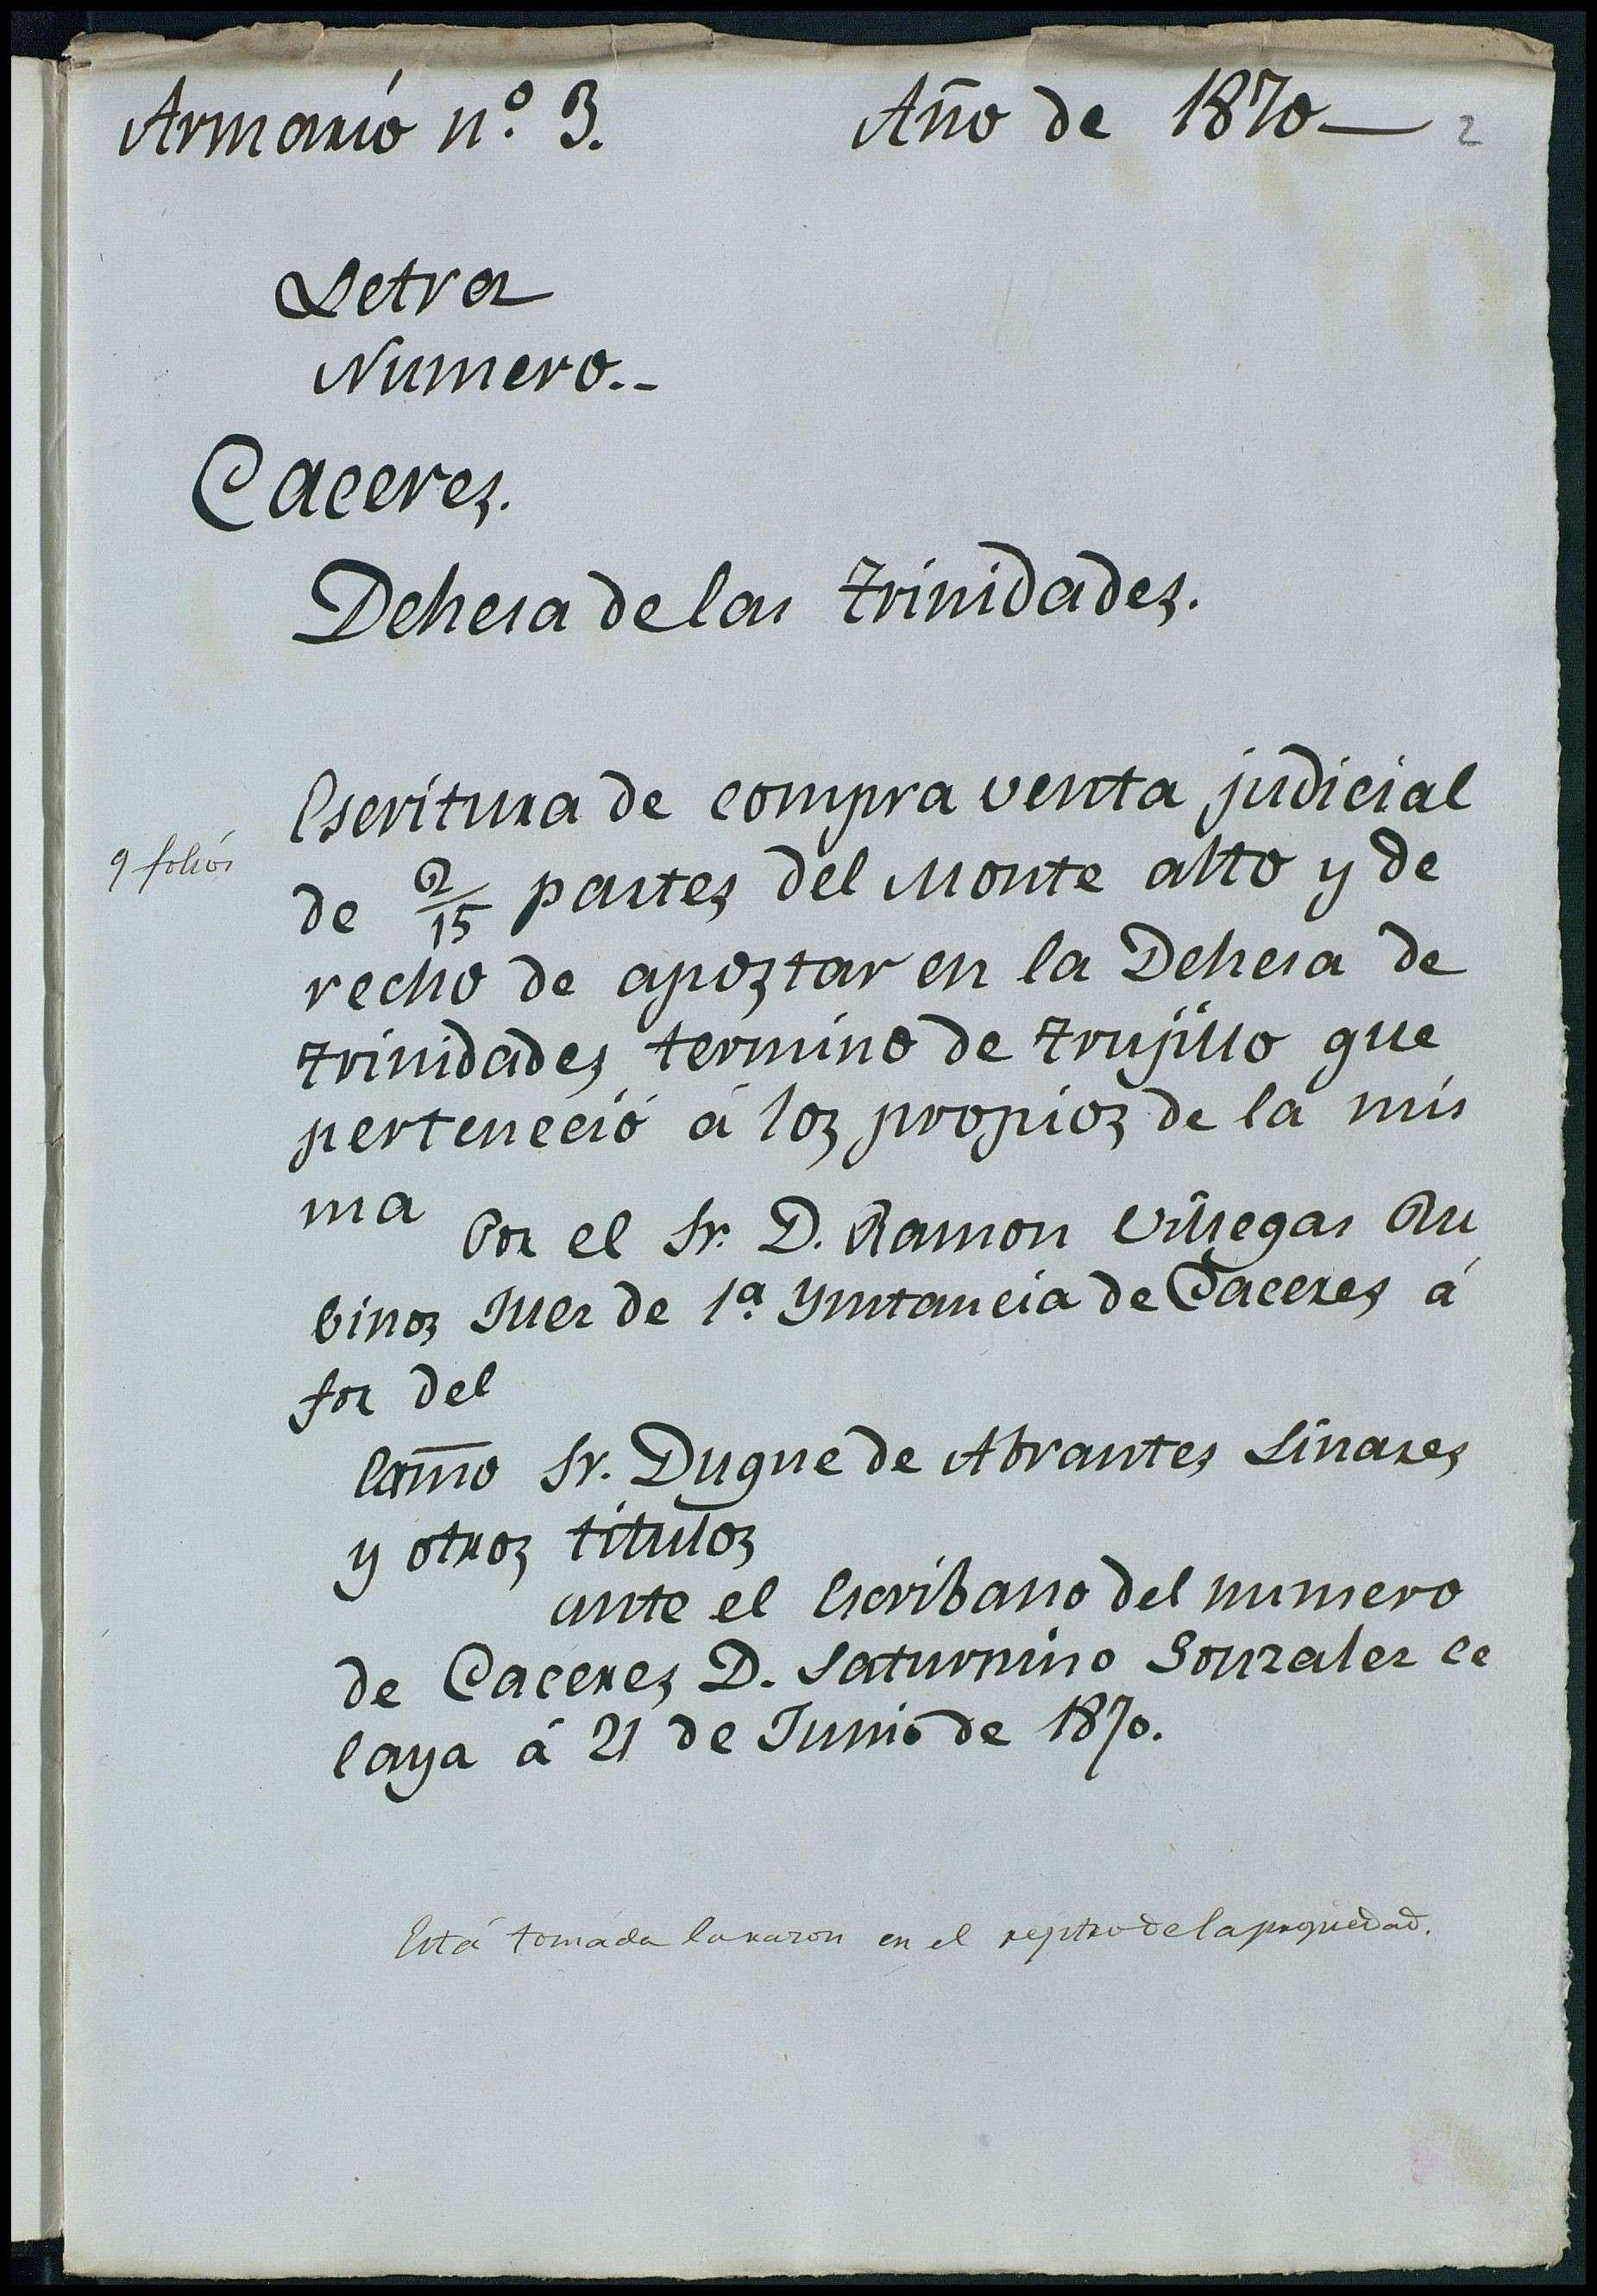 Armario nº. 3. Año de 1870— 2
Letra
Numero.-
Caceres.
Dehesa de las trinidades.
Escritura de compra venta judicial
9 folios
de 2/15 partes del Monte alto y de
recho de apostar en la Dehesa de
trinidades termino de trujillo que
perteneció á los propios de la mis
ma
Por el Sr. D. Ramon Villegas Ru
binos Juez de 1.ª Ynstancia de Caceres á
for del
Sr. Duque de Abrantes Linares
y otros titulos
ante el Escribano del numero
de Caceres D. Saturnino Gonzalez Ce
laya á 21 de Junio de 1870.
Está tomada la razon en el registro de la propiedad.